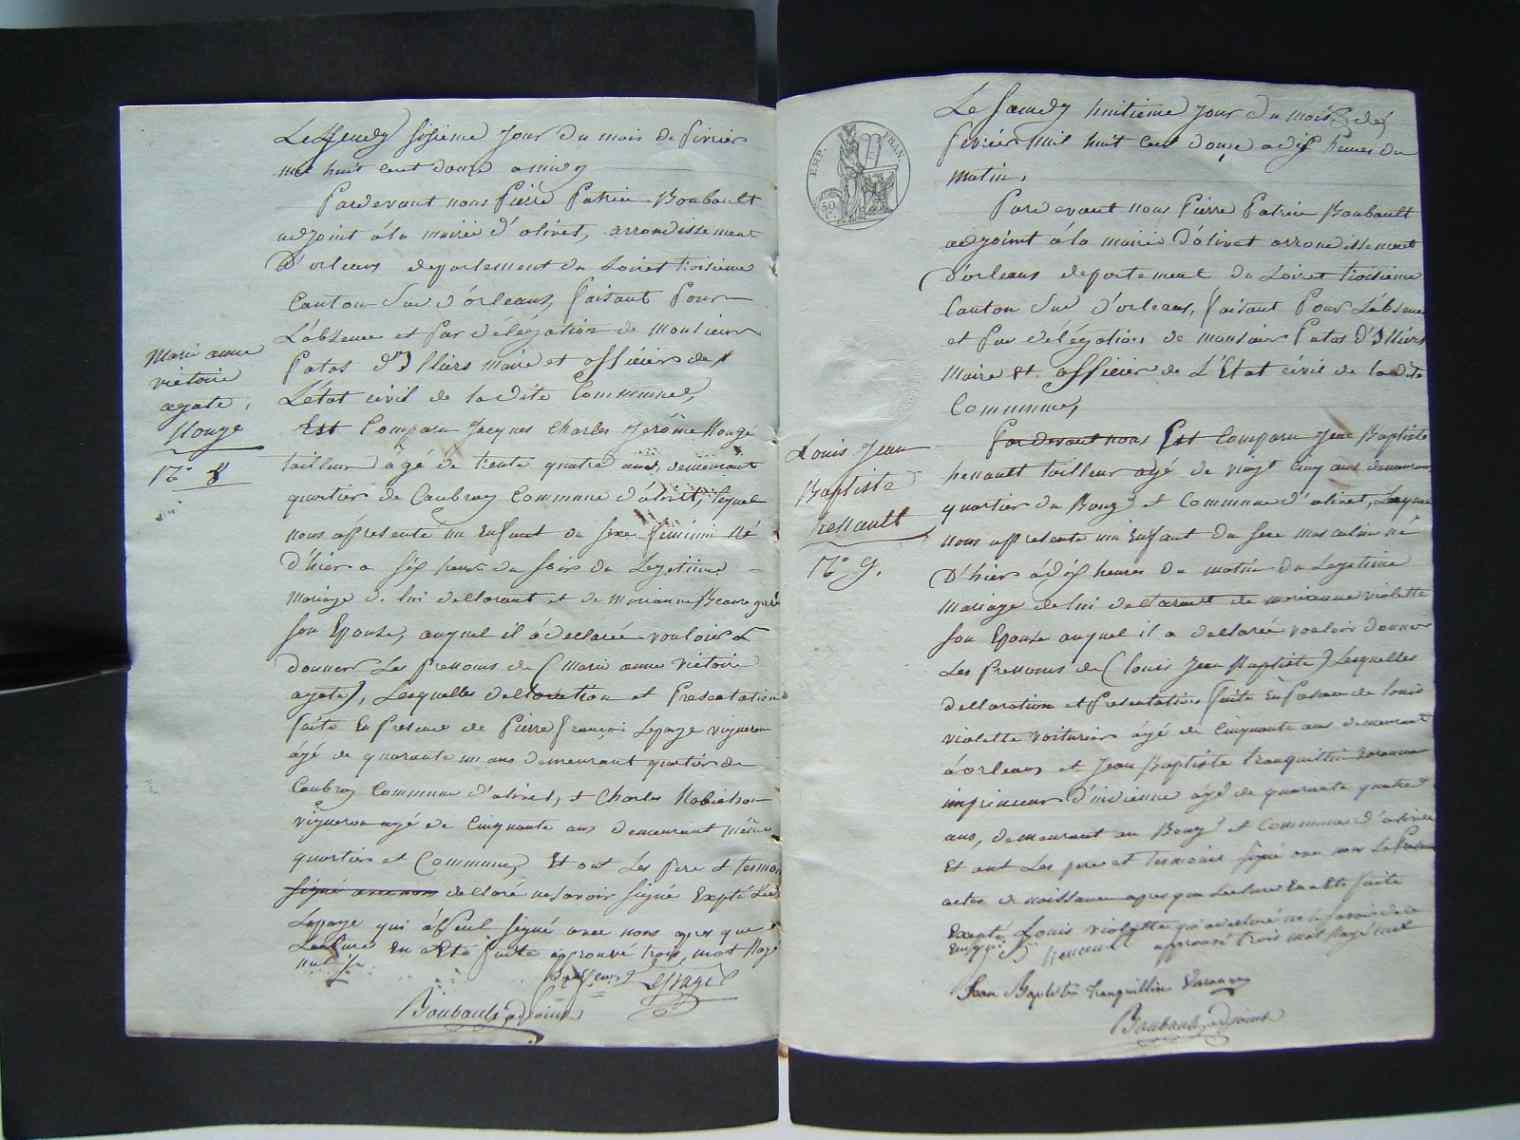 Le Jeudy sixieme Jour du mois de fevrier
mil huit cent douze a midy
Pardevant nous Pierre Patrice Boubault
adjoint á la mairie d'olivet, arrondissement
D'orleans departement du Loiret troisieme
Canton Sud d'orleans, faisant Pour
L'absence et Par délégation de Monsieur
Patas d'Illiers maire et officier de
L'état civil de la dite Commune,
Est Comparu Jacques Charles Jérôme Rouge
tailleur âgé de trente quatre ans, demeurant
quartier de Caubray Commune d'olivet, lequel
nous a presente un Enfant du sexe féminin Né
d'hier a six heures du soir du Legitime
Mariage de lui declarant et de Marianne
son Epouse, auquel il á declaré vouloir
donner Les prenoms de (Marie anne victoire
agate), Lesquelles declaration et Presentation
faite En Presence de Pierre françois Lepage vigneron
ágé de quarante un ans demeurant quartier de
Caubray Commune d'olivet, & Charles
vigneron agé de Cinquante ans demeurant même
quartier et Commune, Et ont Les pere & temoin
signé avec nous declaré ne savoir signé Excpté Led.
Lepage qui á seul signé avec nous apres que
Lecture En a Eté faite approuvé trois mot Rayé
nul
Lepage
Boubault adjoint
Marie anne
victoire
agate,
Rouge
N° 8
EMP. FRAN.
50
Le Samedy huitieme Jour du mois de
fevrier mil huit cent douze a dix heures du
matin,
Pardevant nous Pierre Patrice Boubault
adjoint á la mairie d'olivet arrondissement
D'orleans departement du Loiret troisieme
Canton Sud d'orleans, faisant Pour L'absence
et Par délégation de monsieur Patas d'Illiers
Maire et officier de L'Etat civil de la dite
Commune,
Pardevant nous Est Comparu Jean Baptiste
henault tailleur agé de vingt cinq ans demeurant
quartier du Bourg et Commune d'olivet, Lequel
nous a presenté un Enfant du sexe masculin né
D'hier á dix heures du matin du Legitime
mariage de lui declarant de marianne violette
son Epouse auquel il a declaré vouloir donner
Les Prenoms de (Louis Jean Baptiste) Lesquelles
declaration et Presentation faite En Presence de Louis
violette voiturier ágé de Cinquante ans demeurant
á orleans et Jean Baptiste tranquillin Varanne
imprimeur d'indienne ágé de quarante quatre
ans, demeurant au Bourg et Commune d'olivet
Et ont Les pere et temoins signé avec nous Le Present
acte de naissance apres que Lecture En a Eté faite
Excepté Louis violette qui a declaré ne le savoir de ce
Enquis henault approuvé trois mot Rayé nul
Jean Baptiste tranquillin Varanne
Boubault adjoint
Louis Jean
Baptiste
henault
N° 9.